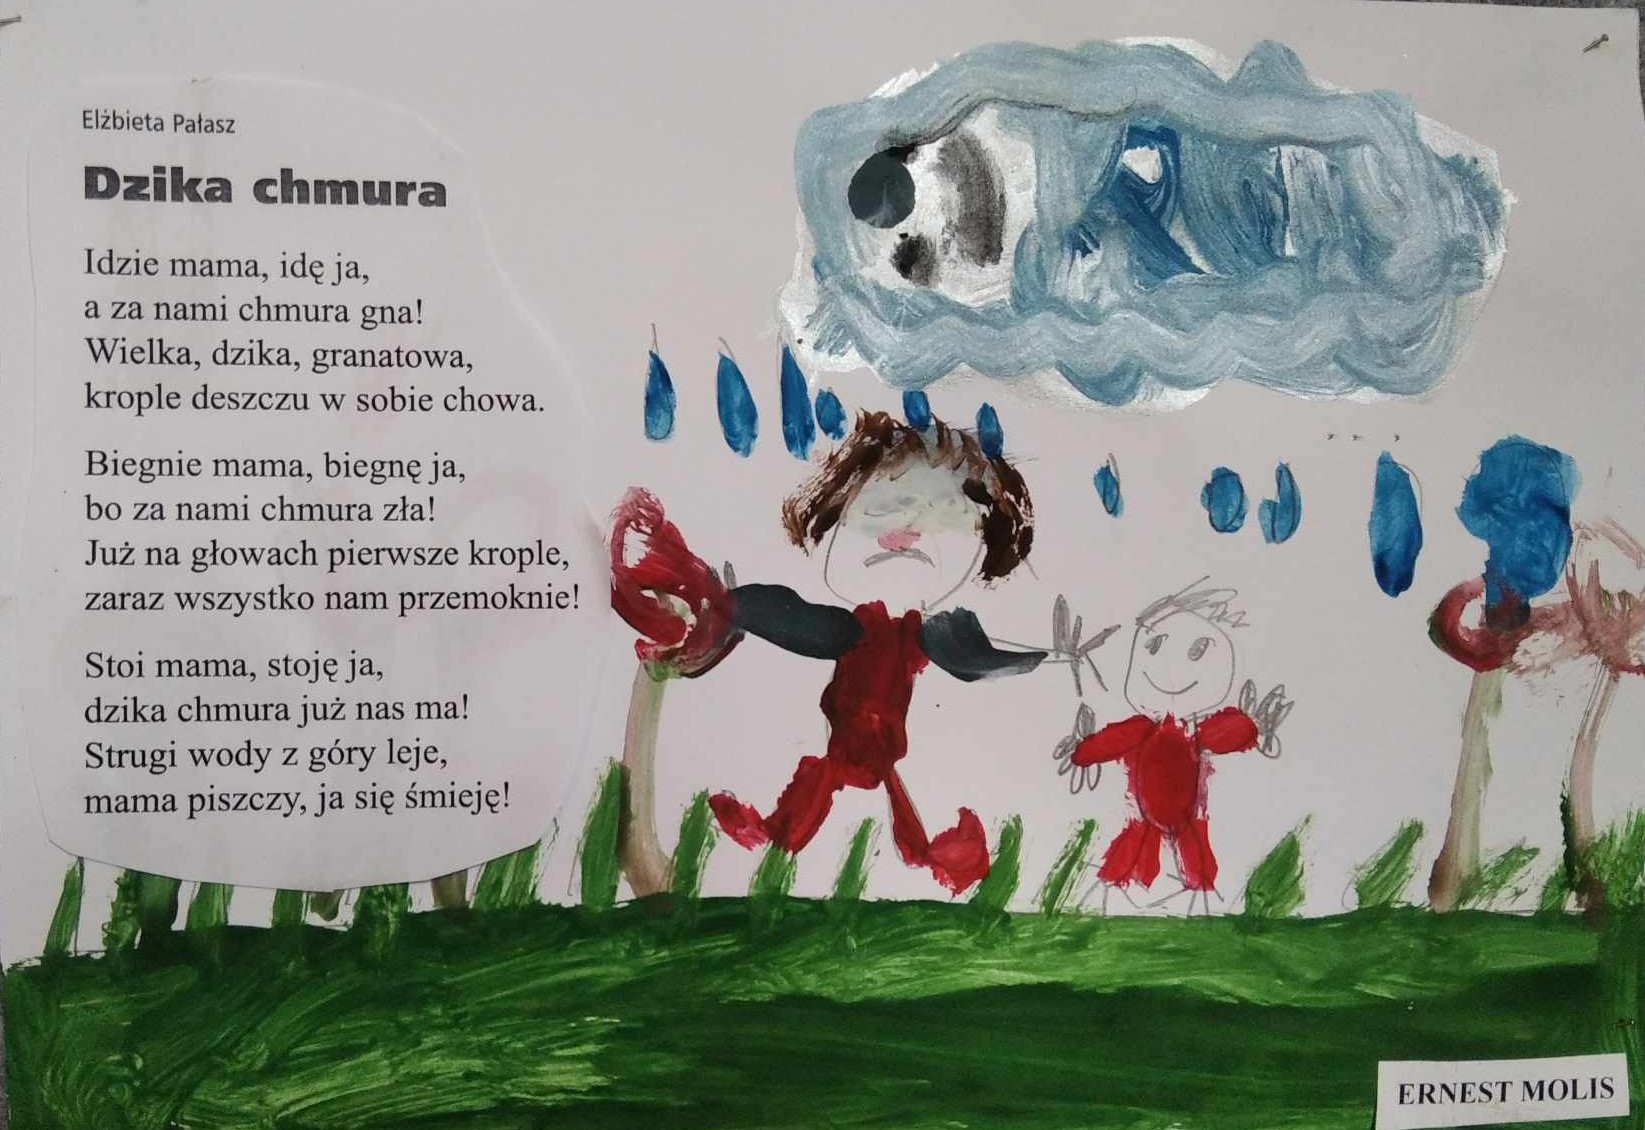 Elżbieta Pałasz
Dzika chmura
Idzie mama, idę ja,
a za nami chmura gna!
Wielka, dzika, granatowa,
krople deszczu w sobie chowa.
Biegnie mama, biegnę ja,
bo za nami chmura zła!
Już na głowach pierwsze krople,
zaraz wszystko nam przemoknie!
Stoi mama, stoję ja,
dzika chmura już nas ma!
Strugi wody z góry leje,
mama piszczy, ja się śmieję!
ERNEST MOLIS